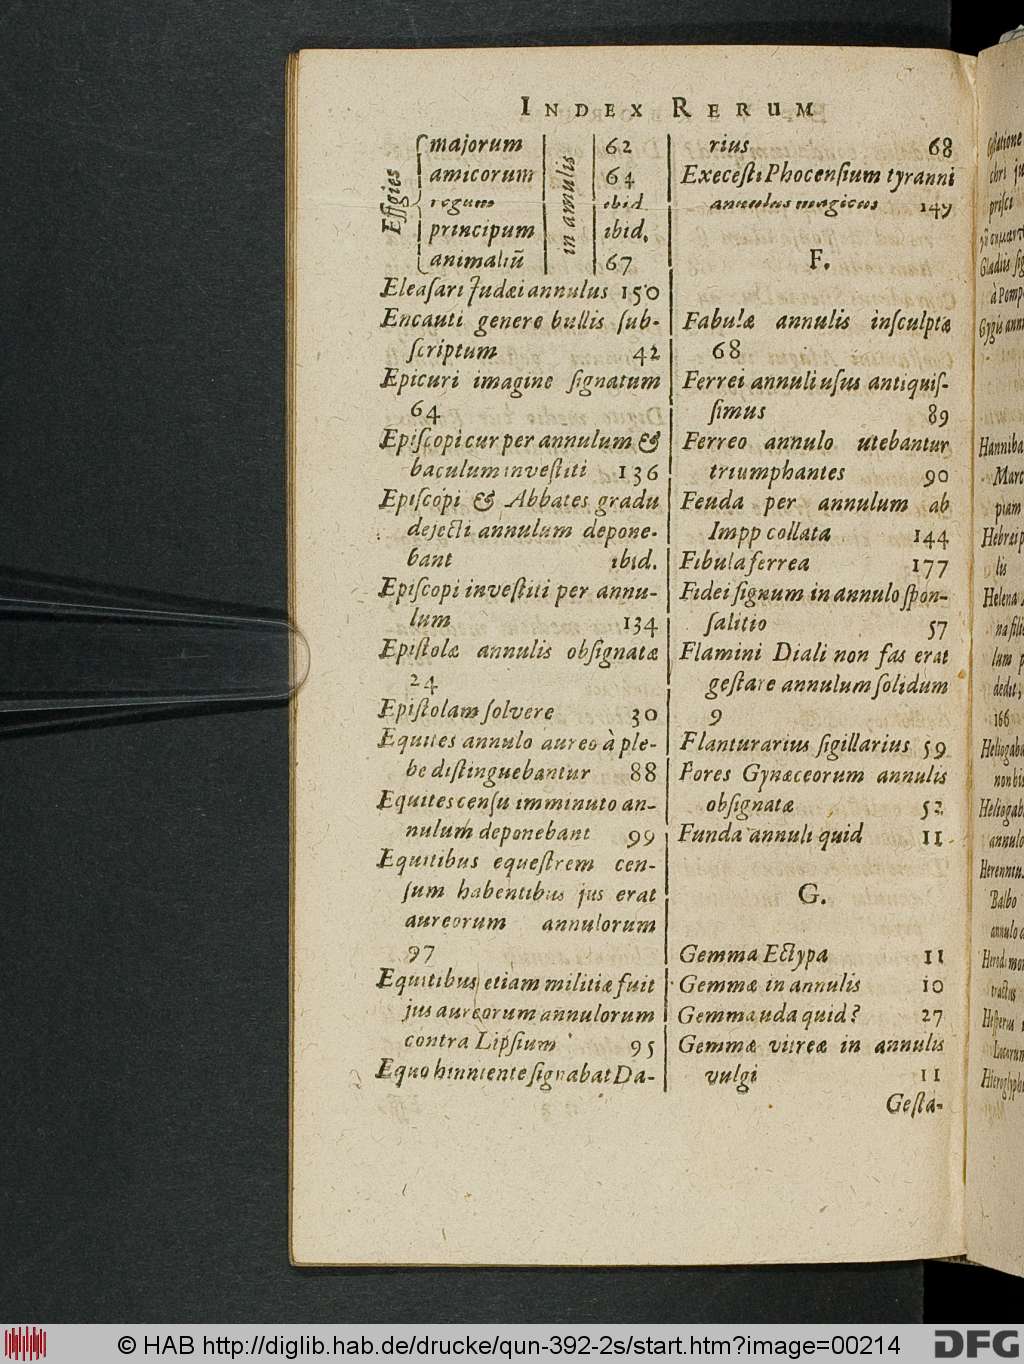 INDEX RERUM
Effigies
majorum 62
amicorum 64
regum ibid.
principum ibid.
animaliū 67
in annulis
Eleasari Judæi annulus 150
Encausti genere bullis sub-
scriptum 42
Epicuri imagine signatum
64
Episcopi cur per annulum &
baculum investiti 136
Episcopi & Abbates gradu
dejecti annulum depone-
bant ibid.
Episcopi investiti per annu-
lum 134
Epistolæ annulis obsignatæ
24
Epistolam solvere 30
Equites annulo aureo à ple-
be distinguebantur 88
Equites censu imminuto an-
nulum deponebant 99
Equitibus equestrem cen-
sum habentibus jus erat
aureorum annulorum
97
Equitibus etiam militiæ fuit
jus aureorum annulorum
contra Lipsium 95
Equo hinniente signabat Da-
rius 68
Execesti Phocensium tyranni
annulus magicus 149
F.
Fabulæ annulis insculptæ
68
Ferrei annuli usus antiquis-
simus 89
Ferreo annulo utebantur
triumphantes 90
Feuda per annulum ab
Impp collata 144
Fibula ferrea 177
Fidei signum in annulo spon-
salitio 57
Flamini Diali non fas erat
gestare annulum solidum
9
Flanturarius sigillarius 59
Fores Gynæceorum annulis
obsignatæ 52
Funda annuli quid 11
G.
Gemma Ectypa 11
Gemmæ in annulis 10
Gemma uda quid? 27
Gemmæ vitreæ in annulis
vulgi 11
Gesta-
© HAB http://diglib.hab.de/drucke/qun-392-2s/start.htm?image=00214
DFG